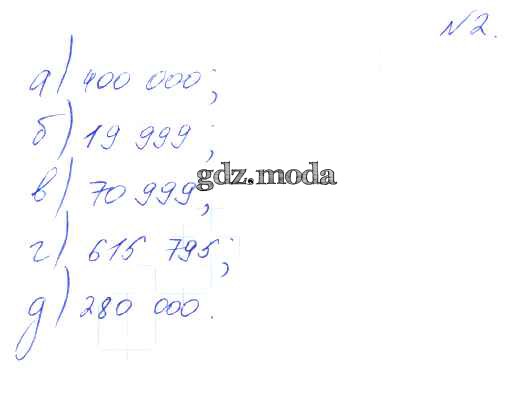 №2.
а) 400 000;
б) 19 999;
gdz.moda
в) 70 999;
г) 615 795;
д) 280 000.